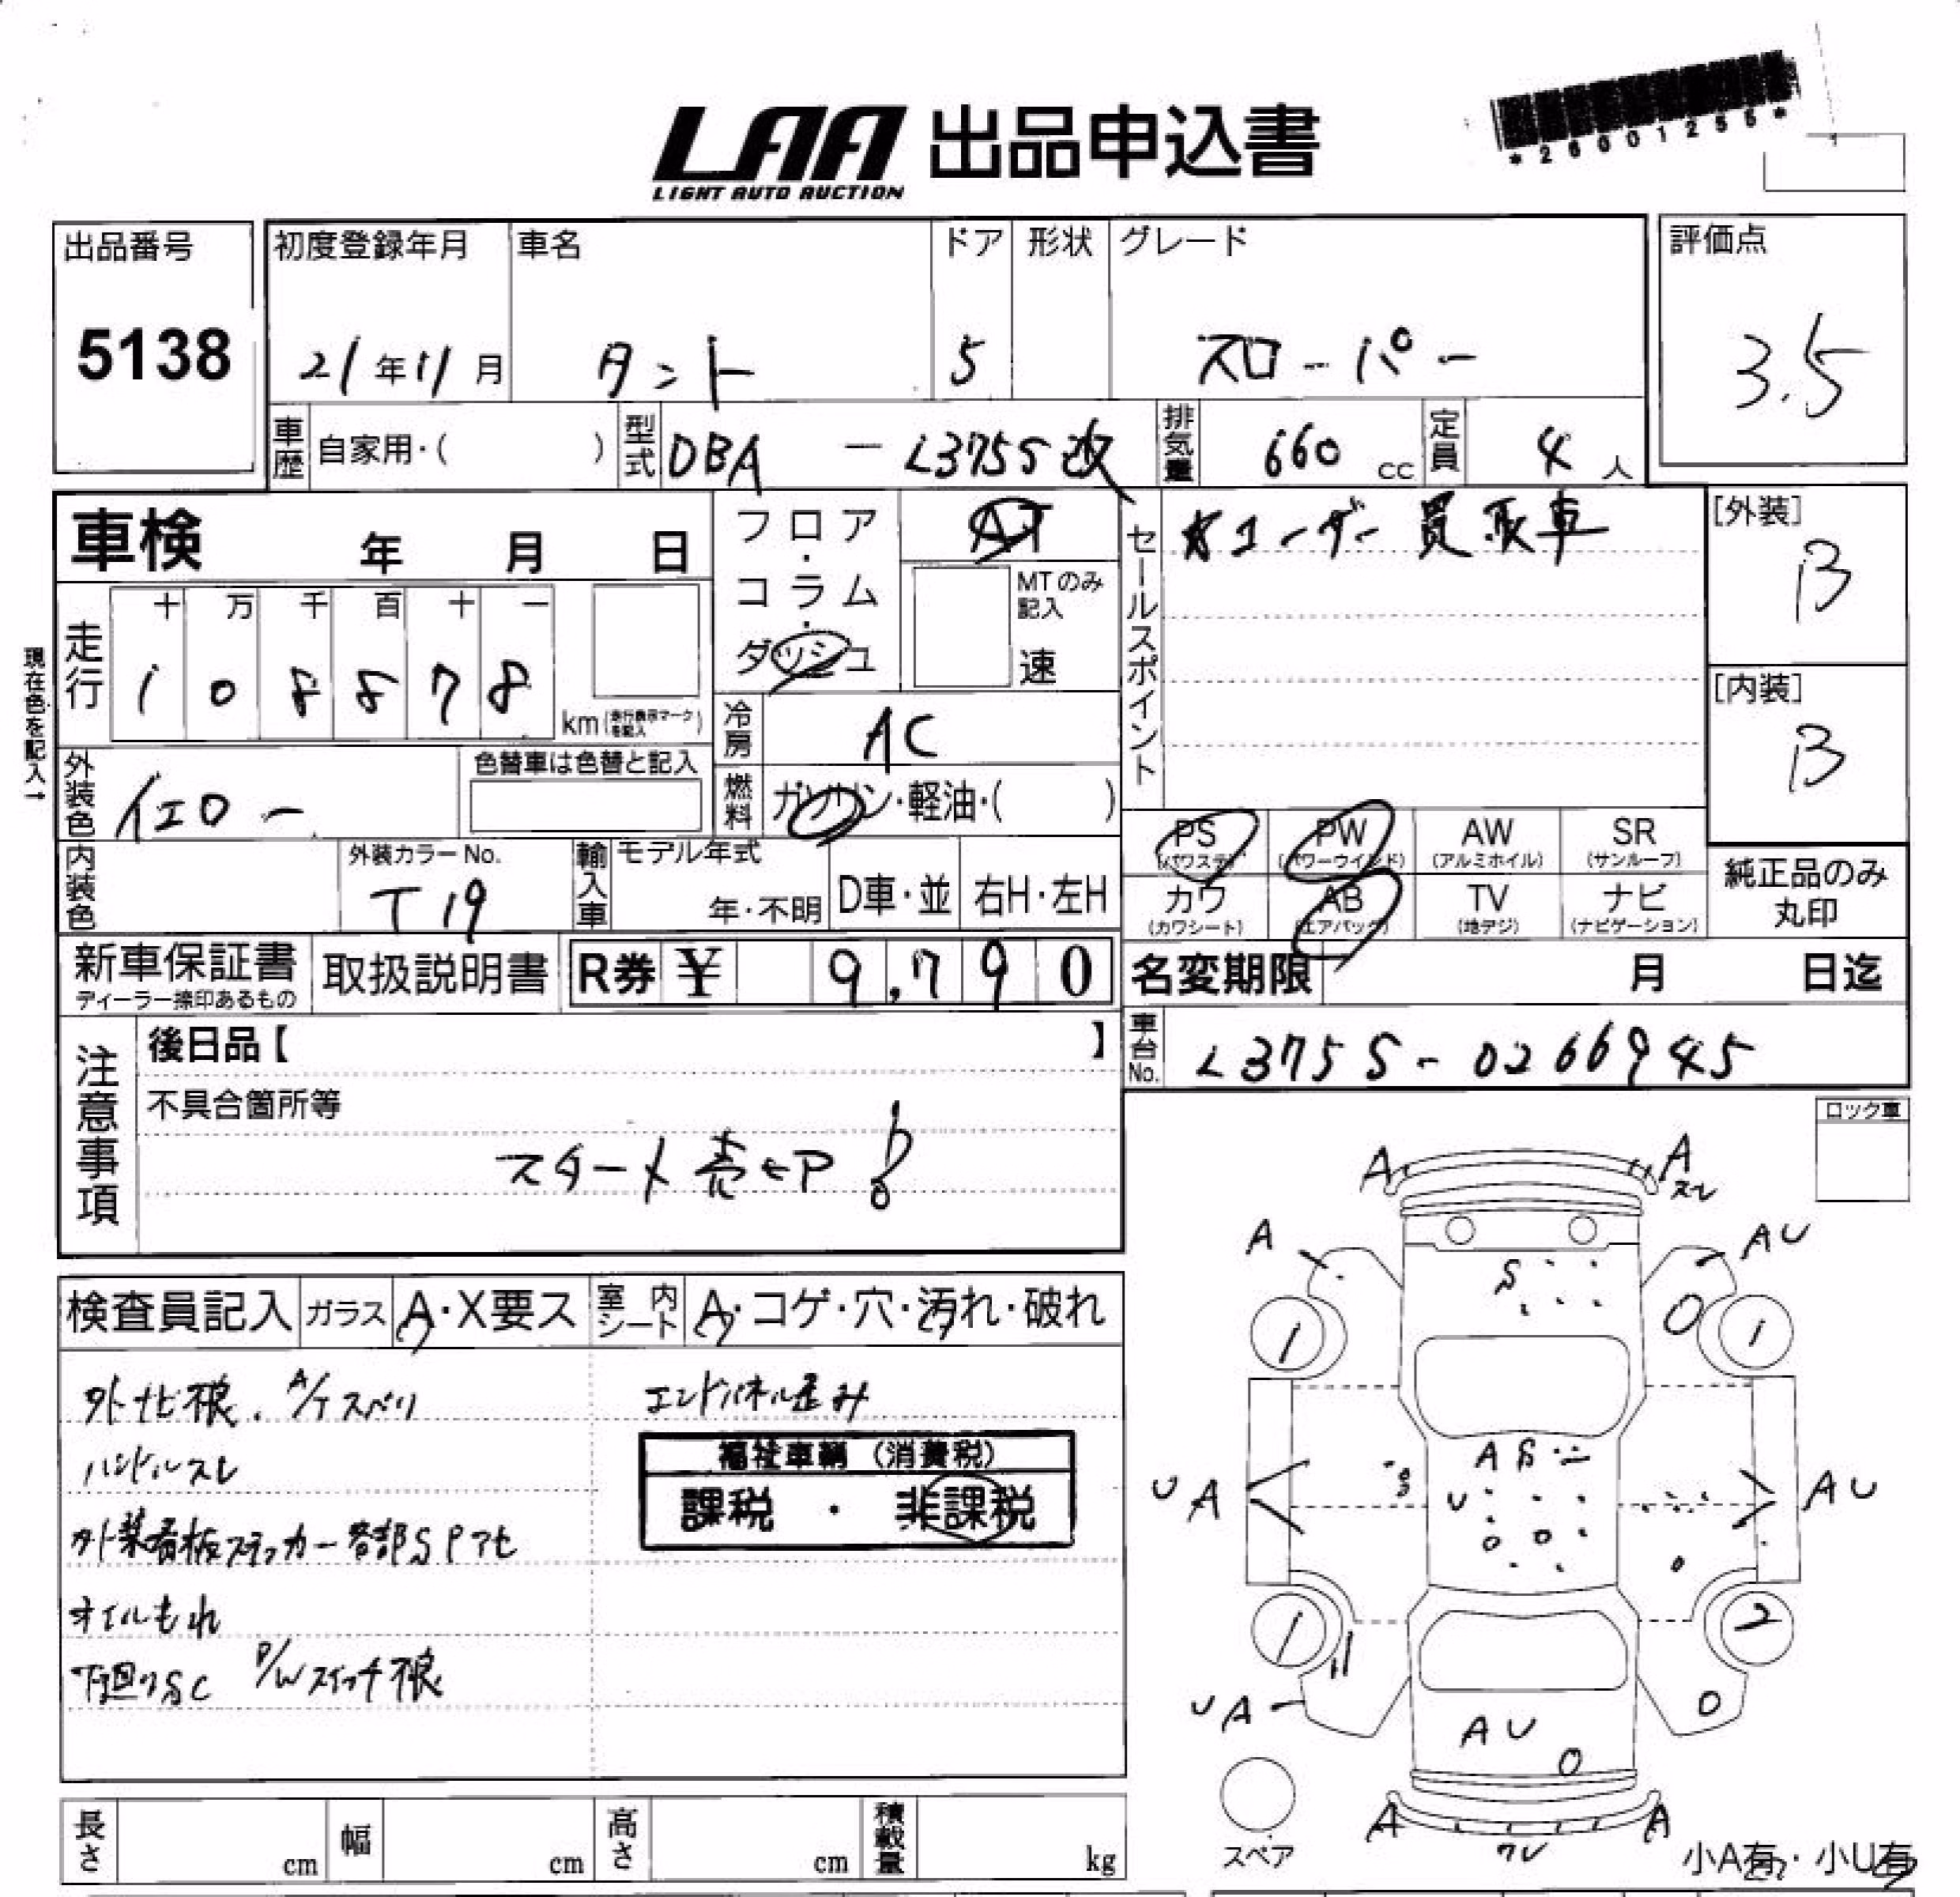 LAA 出品申込書
LIGHT AUTO AUCTION
*26001255*
出品番号
5138
初度登録年月
21年11月
車名
タント
ドア
5
形状
グレード
スローパー
評価点
3.5
車歴
自家用・( )
型式
DBA - L375S改
排気量
660 cc
定員
4人
車検 年 月 日
フロア・コラム・ダッシュ
AT
MTのみ記入
速
セールスポイント
★ユーザー買取車
[外装]
B
[内装]
B
現在色を記入→
走行
十 万 千 百 十 一
1 0 8 8 7 8
km(走行表示マークを記入)
冷房
AC
外装色
イエロー
色替車は色替と記入
燃料
ガソリン・軽油・( )
PS (パワステ)
PW (パワーウインド)
AW (アルミホイル)
SR (サンルーフ)
カワ (カワシート)
AB (エアバック)
TV (地デジ)
ナビ (ナビゲーション)
純正品のみ丸印
内装色
外装カラーNo.
T19
輸入車
モデル年式
年・不明
D車・並
右H・左H
新車保証書
ディーラー捺印あるもの
取扱説明書
R券 ¥ 9,790
名変期限 月 日迄
車台No.
L375S-0266945
注意事項
後日品【 】
不具合箇所等
スタート売切
ロック車
検査員記入
ガラス
A・X要ス
室内シート
A・コゲ・穴・汚れ・破れ
外ナビ不良. A/Tスベリ
エンドパネル歪み
ハンドルスレ
福祉車輌 (消費税)
課税 ・ 非課税
外装看板ステッカー各部SPアセ
オイルもれ
下廻りSC P/Wスイッチ不良
A
A
スレ
A
AU
S
O
1
1
A S
U A
U
A U
1
2
U A
A U
O
O
A
ワレ
A
スペア
小A有・小U有
長さ cm
幅 cm
高さ cm
積載量 kg